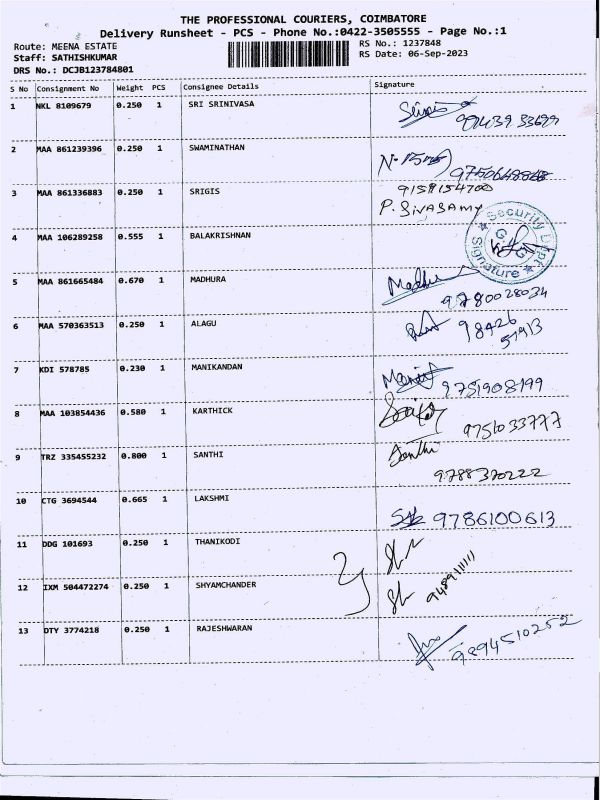 THE PROFESSIONAL COURIERS, COIMBATORE
Delivery Runsheet - PCS - Phone No.:0422-3505555 - Page No.:1
Route: MEENA ESTATE
Staff: SATHISHKUMAR
DRS No.: DCJB123784801
RS No.: 1237848
RS Date: 06-Sep-2023
S No Consignment No Weight PCS Consignee Details Signature
1 NKL 8109679 0.250 1 SRI SRINIVASA
2 MAA 861239396 0.250 1 SWAMINATHAN
3 MAA 861336883 0.250 1 SRIGIS 9159154700
P. SIVASAMY
4 MAA 106289258 0.555 1 BALAKRISHNAN
Security
Signature
5 MAA 861665484 0.670 1 MADHURA Madhu
9780028034
6 MAA 570363513 0.250 1 ALAGU 98426
51913
7 KDI 578785 0.230 1 MANIKANDAN
9751908199
8 MAA 103854436 0.580 1 KARTHICK
9751033777
9 TRZ 335455232 0.800 1 SANTHI Santhi
9788370222
10 CTG 3694544 0.665 1 LAKSHMI 9786100613
11 DDG 101693 0.250 1 THANIKODI
12 IXM 504472274 0.250 1 SHYAMCHANDER
13 OTY 3774218 0.250 1 RAJESHWARAN 9894510252